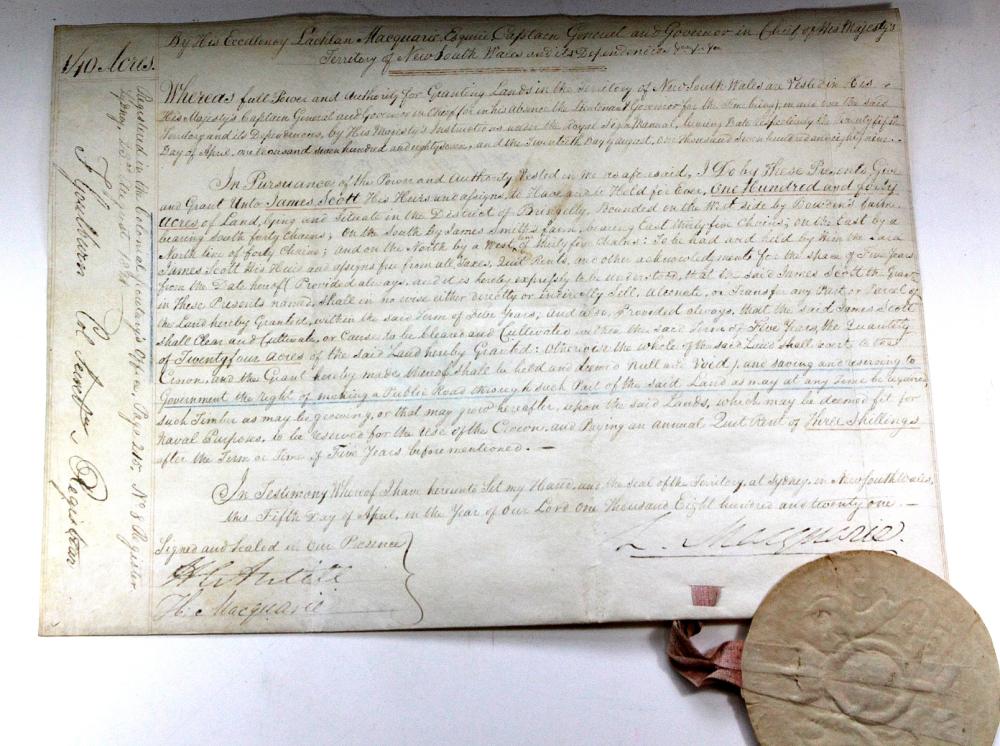 By His Excellency Lachlan Macquarie Esquire Captain General and Governor in Chief of His Majesty's
Territory of New South Wales and its Dependencies
140 Acres.
Whereas full Power and Authority for Granting Lands in the Territory of New South Wales are Vested in His
His Majesty's Captain General and Governor in Chief (or in his absence the Lieutenant Governor for the time being) in and over the said
Territory and its Dependencies, by His Majesty's Instructions under the Royal Sign Manual, bearing Date respectively the Twenty fifth
Day of April, one thousand seven hundred and eighty seven, and the Twentieth Day of August, one thousand seven hundred and eighty nine
In Pursuance of the Power and Authority Vested in me as aforesaid, I Do by These Presents, Give
and Grant Unto James Scott His Heirs and assigns, to Have and to Hold for Ever, One Hundred and forty
Acres of Land, lying and Situate in the District of Bringelly, Bounded on the West side by Bowden's farm
bearing South forty Chains; On the South by James Smith's farm, bearing East thirty five Chains; on the East by a
North line of forty Chains; and on the North by a West line of thirty five Chains: To be had and held by Him the said
James Scott His Heirs and assigns free from all Taxes, Quit Rents, and other acknowledgments for the space of Five Years
from the Date hereof; Provided always, and it is hereby expressly to be understood, that the said James Scott the Grantee
in these Presents named, Shall in no wise either directly or indirectly Sell, Alienate, or Transfer any Part or Parcel of
the Land hereby Granted, within the said Term of Five Years; And also, Provided always, that the said James Scott
shall Clear and Cultivate, or Cause to be Cleared and Cultivated within the said Term of Five Years, the Quantity
of Twenty four Acres of the said Land hereby Granted: Otherwise the whole of the said Land shall revert to the
Crown, and the Grant hereby made thereof shall be held and deemed Null and Void; and saving and reserving to
Government the right of making a Public Road through such Part of the said Land as may at any time be required,
such Timber as may be growing, or that may grow hereafter, upon the said Lands, which may be deemed fit for
Naval Purposes, to be reserved for the Use of the Crown, and Paying an annual Quit Rent of Three Shillings
after the Term or Time of Five Years before mentioned. —
In Testimony Whereof I have hereunto Set my Hand, and the Seal of the Territory, at Sydney, in New South Wales,
this Fifth Day of April, in the Year of Our Lord One Thousand Eight hundred and twenty one. —
L. Macquarie.
Signed and Sealed in Our Presence
H C Antill
H. Macquarie
Registered in the Colonial Secretary's Office, Page 215. No 8 Register
Sydney,
F Goulburn Col Secretary & Registrar